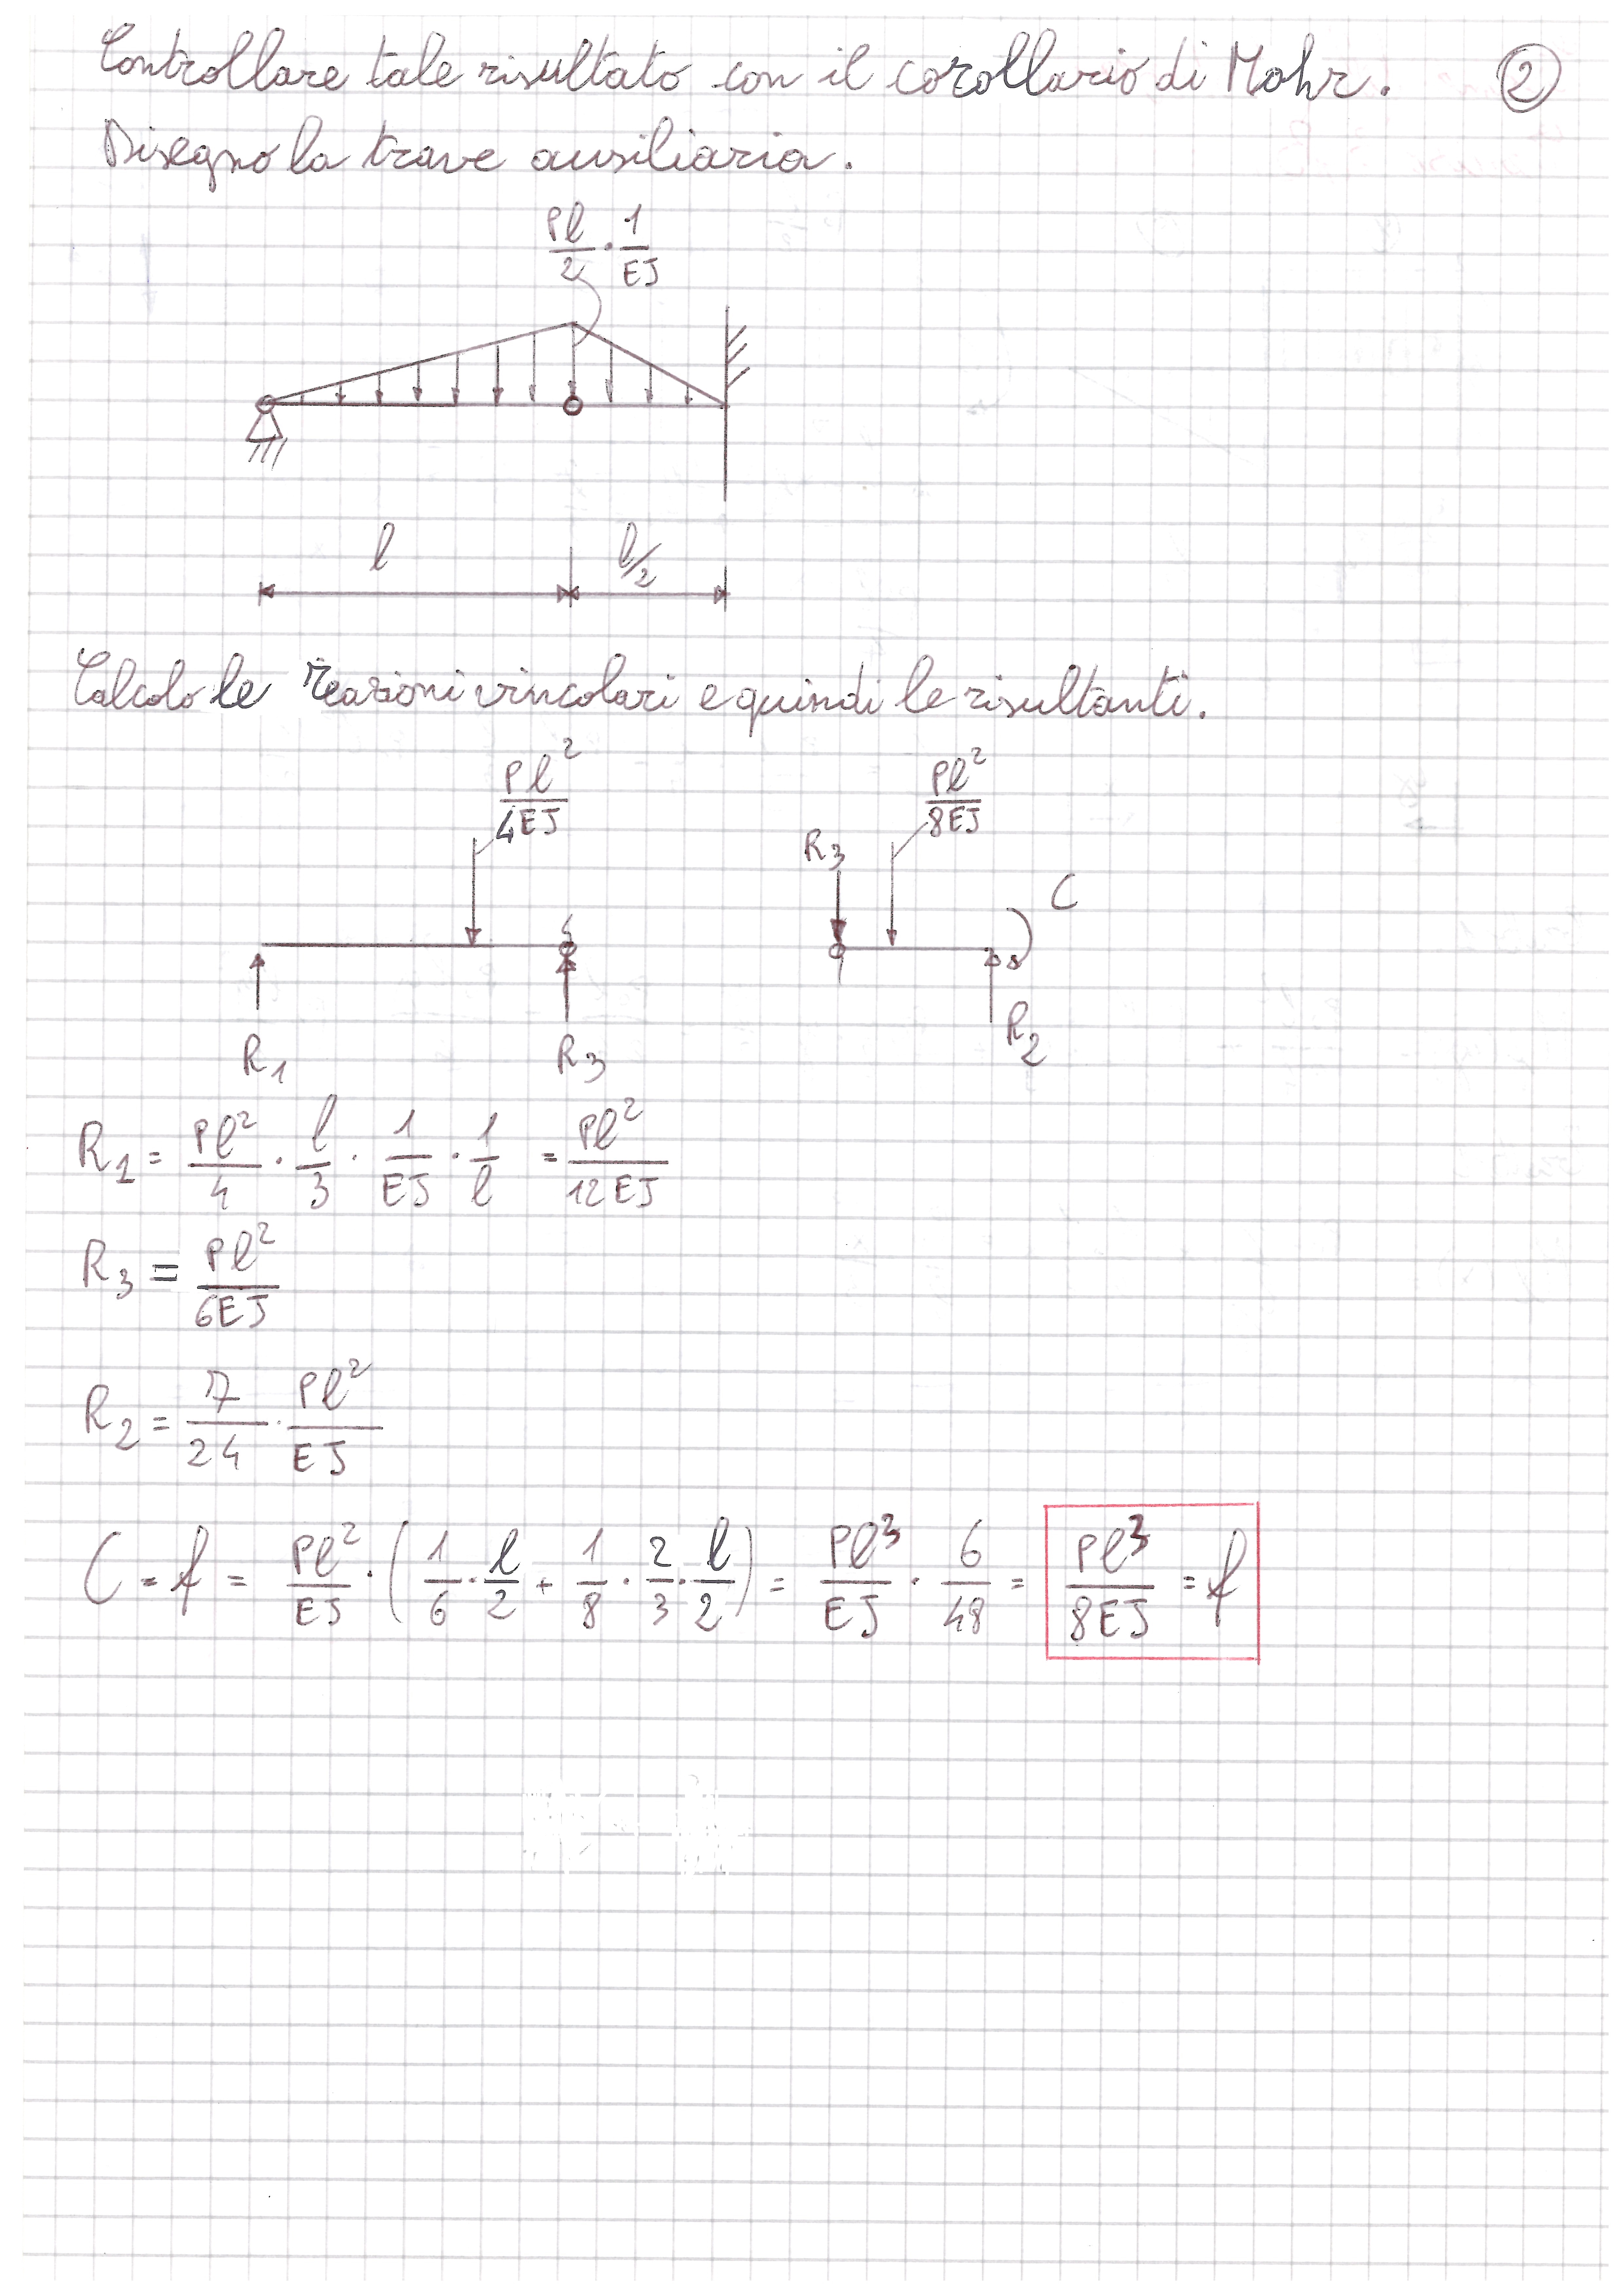 Controllare tale risultato con il corollario di Mohr. 2
Disegno la trave ausiliaria.
Pl/2 · 1/EJ
l l/2
Calcolo le reazioni vincolari e quindi le risultanti.
Pl²/4EJ Pl²/8EJ
R3 C
R1 R3 R2
R1 = Pl²/4 · l/3 · 1/EJ · 1/l = Pl²/12EJ
R3 = Pl²/6EJ
R2 = 7/24 · Pl²/EJ
C = f = Pl²/EJ · (1/6 · l/2 + 1/8 · 2/3 · l/2) = Pl³/EJ · 6/48 = Pl³/8EJ = f